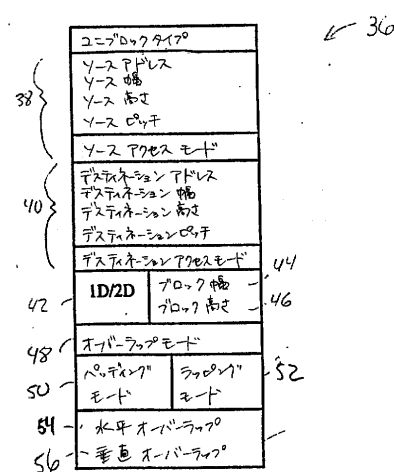 36
ユニブロックタイプ
38
ソース アドレス
ソース 幅
ソース 高さ
ソース ピッチ
ソース アクセス モード
40
デスティネーション アドレス
デスティネーション 幅
デスティネーション 高さ
デスティネーション ピッチ
デスティネーション アクセスモード
42
1D/2D
ブロック 幅 44
ブロック 高さ 46
48 オーバーラップモード
50
パッディング
モード
ラッピング
モード
52
54 水平 オーバーラップ
56 垂直 オーバーラップ